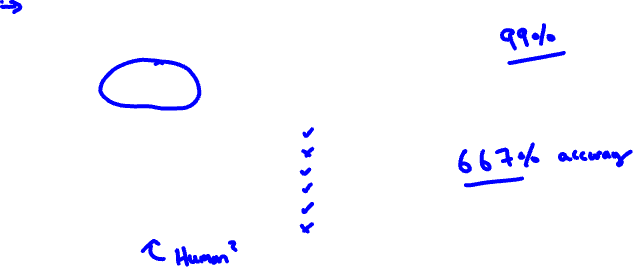 →
99%
✓
×
✓
✓
✓
×
667% accuracy
↖ Human?